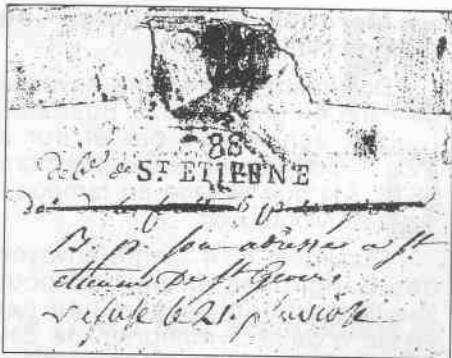 88
deb. de ST ETIENNE
B. p. son adresse a st
etienne De st Geoirs
refusé le 21. pluviose